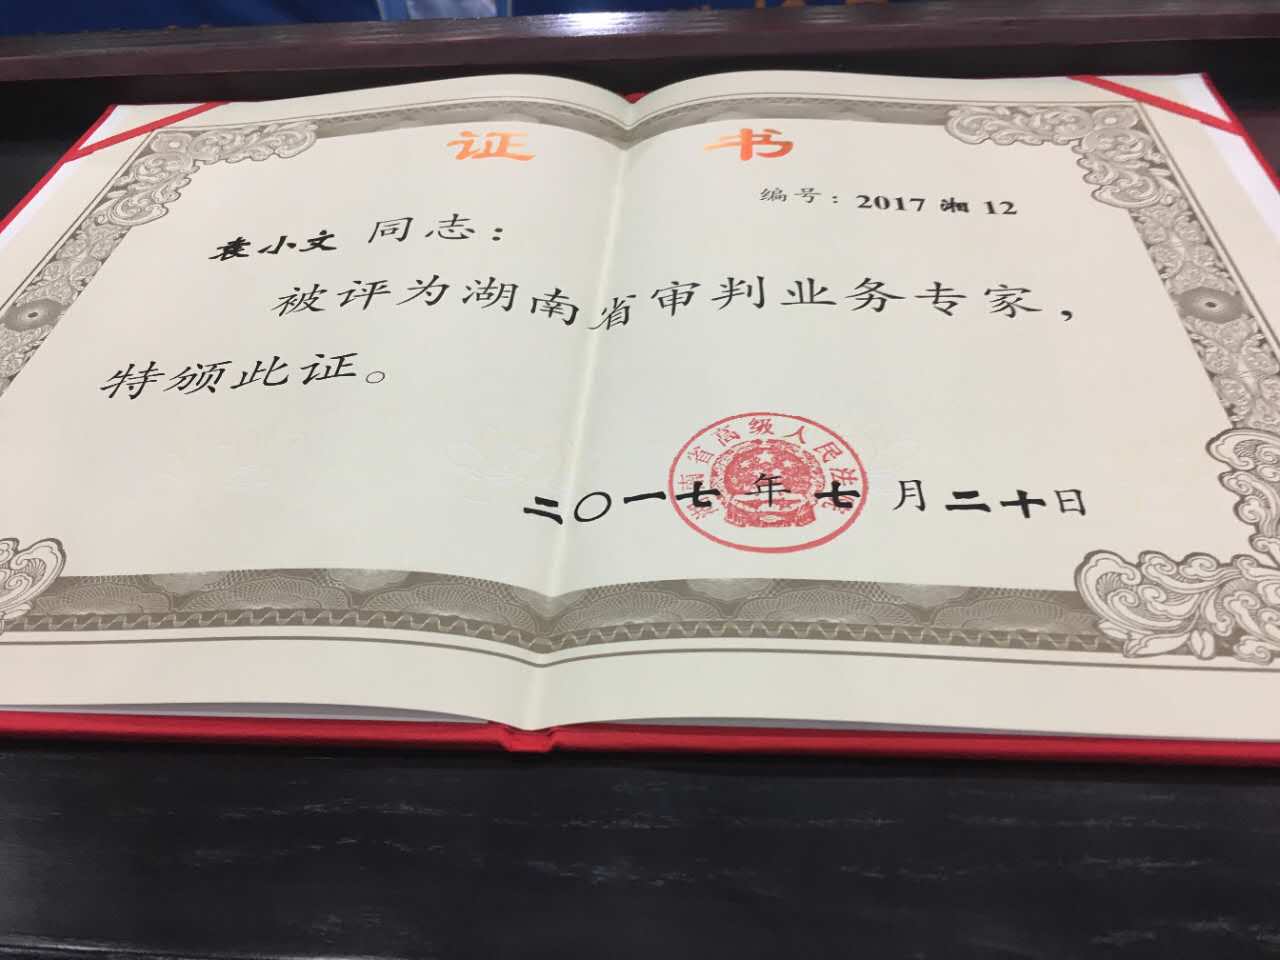 证书
编号：2017 湘 12
袁小文 同志：
被评为湖南省审判业务专家，
特颁此证。
湖南省高级人民法院
二〇一七年七月二十日